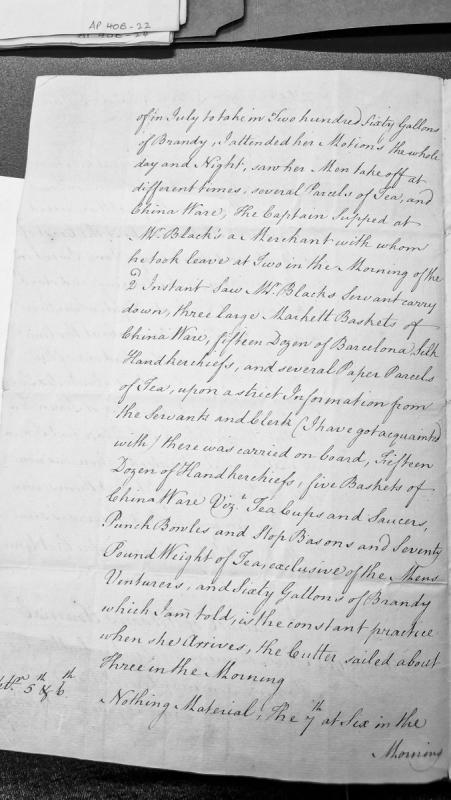 AP 40B-22
AP 40B-20
of in July to take in Two hundred Sixty Gallons
of Brandy, I attended her Motions the whole
day and Night, saw her Men take off at
different times, several Parcels of Tea, and
China Ware, The Captain Supped at
Mr. Black's a Merchant with whom
he took leave at Two in the Morning of the
2d Instant Saw Mr. Blacks Servant carry
down, three large Markett Baskets of
China Ware, fifteen Dozen of Barcelona Silk
Handkerchiefs, and several Paper Parcels
of Tea, upon a strict Information from
the Servants and Clerk (I have got acquainted
with) there was carried on board, Fifteen
Dozen of Handkerchiefs, five Baskets of
China Ware Vizt. Tea Cups and Saucers,
Punch Bowles and Slop Basons and Seventy
Pound Weight of Tea, exclusive of the Mens
Venturers, and Sixty Gallons of Brandy
which I am told, is the constant practice
when she Arrives, the Cutter sailed about
three in the Morning
5th & 6th
Nothing Material, The 7th at Six in the
Morning